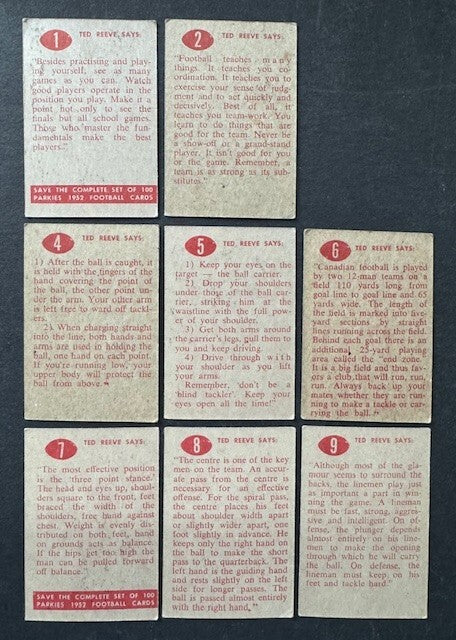 1
TED REEVE SAYS:
"Besides practising and play-
ing yourself, see as many
games as you can. Watch
good players operate in the
position you play. Make it a
point not only to see the
finals but all school games.
Those who master the fun-
damentals make the best
players."
SAVE THE COMPLETE SET OF 100
PARKIES 1952 FOOTBALL CARDS
2
TED REEVE SAYS:
"Football teaches many
things. It teaches you co-
ordination. It teaches you to
exercise your sense of judg-
ment and to act quickly and
decisively. Best of all, it
teaches you team-work. You
learn to do things that are
good for the team. Never be
a show-off or a grand-stand
player. It isn't good for you
or the game. Remember, a
team is as strong as its sub-
stitutes."
4
TED REEVE SAYS:
1) After the ball is caught, it
is held with the fingers of the
hand covering the point of
the ball, the other point un-
der the arm. Your other arm
is left free to ward off tack-
lers.
2) When charging straight
into the line, both hands and
arms are used in holding the
ball, one hand on each point.
If you're running low, your
upper body will protect the
ball from above."
5
TED REEVE SAYS:
1) Keep your eyes on the
target — the ball carrier.
2) Drop your shoulders
under those of the ball car-
rier, striking him at the
waistline with the full pow-
er of your shoulder.
3) Get both arms around
the carrier's legs, pull them
to you and keep driving.
4) Drive through with
your shoulder as you lift
your arms.
Remember, 'don't be a
'blind tackler'. Keep your
eyes open all the time!"
6
TED REEVE SAYS:
"Canadian football is played
by two 12-man teams on a
field 110 yards long from
goal line to goal line and 65
yards wide. The length of
the field is marked into five
yard sections by straight
lines running across the field.
Behind each goal there is an
additional 25-yard playing
area called the "end zone."
It is a big field and thus fav-
ors a club that will run, run,
run. Always back up your
mates whether they are run-
ning to make a tackle or car-
rying the ball."
7
TED REEVE SAYS:
"The most effective position
is the 'three point stance'.
The head and eyes up, shoul-
ders square to the front, feet
braced the width of the
shoulders, free hand against
chest. Weight is evenly dis-
tributed on both feet, hand
on grounds acts as balance.
If the hips get too high the
man can be pulled forward
off balance."
SAVE THE COMPLETE SET OF 100
PARKIES 1952 FOOTBALL CARDS
8
TED REEVE SAYS:
"The centre is one of the key
men on the team. An accur-
ate pass from the centre is
necessary for an effective
offense. For the spiral pass,
the centre places his feet
about shoulder width apart
or slightly wider apart, one
foot slightly in advance. He
keeps only the right hand on
the ball to make the short
pass to the quarterback. The
left hand is the guiding hand
and rests slightly on the left
side for longer passes. The
ball is passed almost entirely
with the right hand."
9
TED REEVE SAYS:
"Although most of the gla-
mour seems to surround the
backs, the linemen play just
as important a part in win-
ning the game. A lineman
must be fast, strong, aggress-
ive and intelligent. On of-
fense, the plunger depends
almost entirely on his line-
men to make the opening
through which he will carry
the ball. On defense, the
lineman must keep on his
feet and tackle hard."